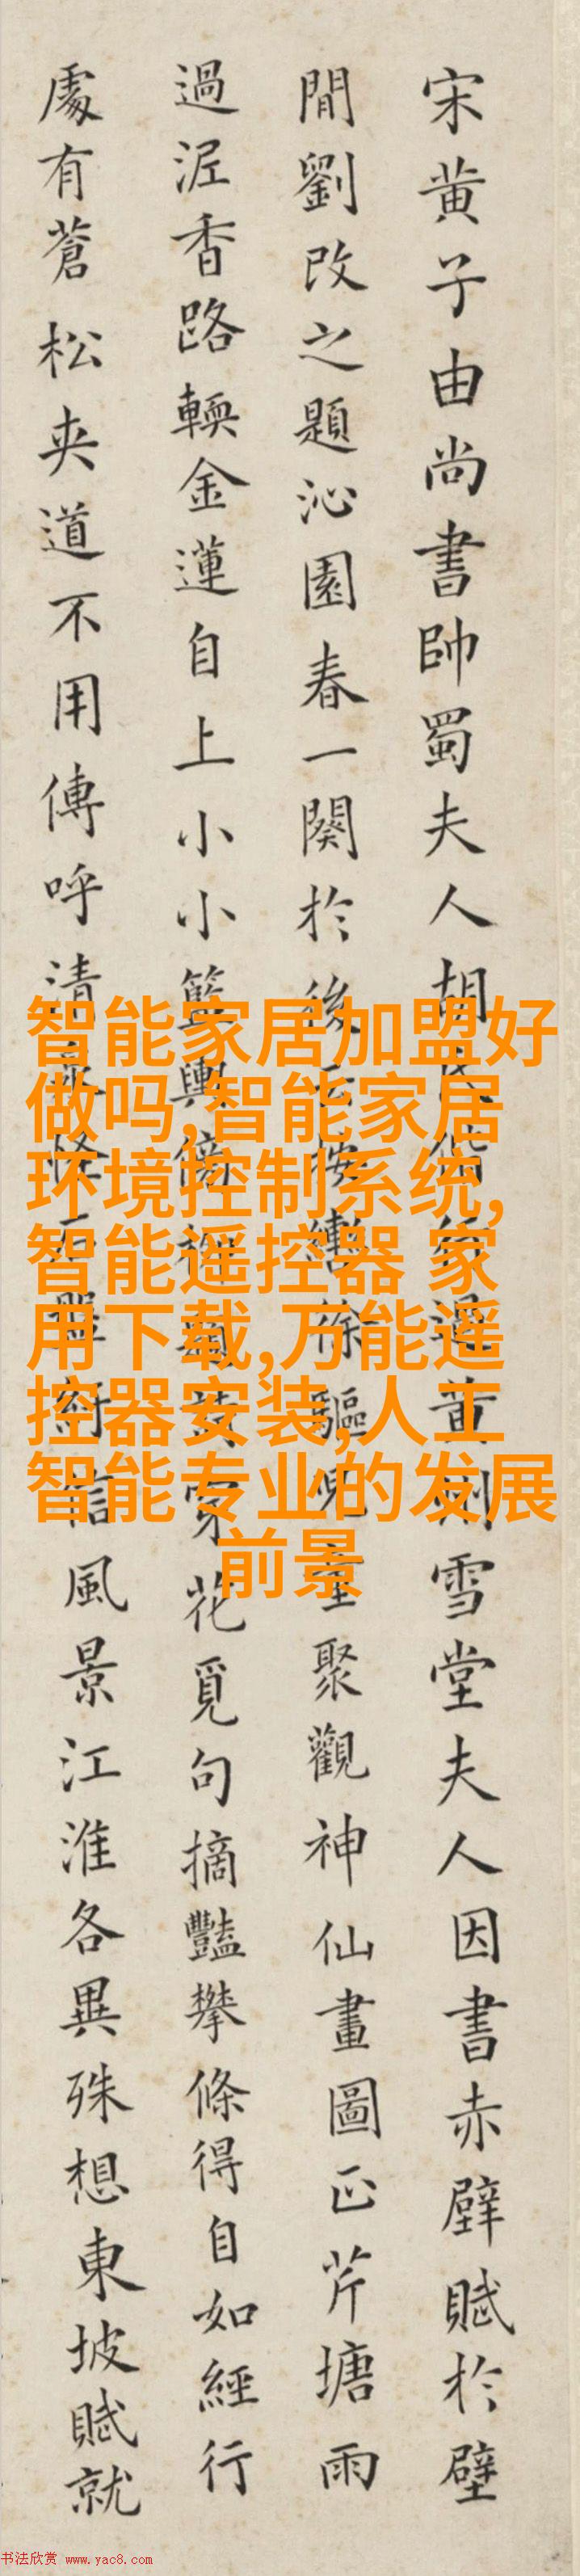 宋黄子由尚書帥蜀夫人胡行黄州雪堂夫人因書赤壁賦於壁
間劉改之題沁園春一闋於後按轡徐驅兒童聚觀神仙畫圖正芹塘雨
過泥香路輭金蓮自上小小籃輿傍穿花覓句摘豔攀條得自如經行
處有蒼松夾道不用傳呼清怪石盤紆信風景江淮各異殊想東坡賦就
智能家居加盟好
做吗,智能家居
环境控制系统,
智能遥控器 家
用下载,万能遥
控器安装,人工
智能专业的发展
前景
书法欣赏 www.yac8.com